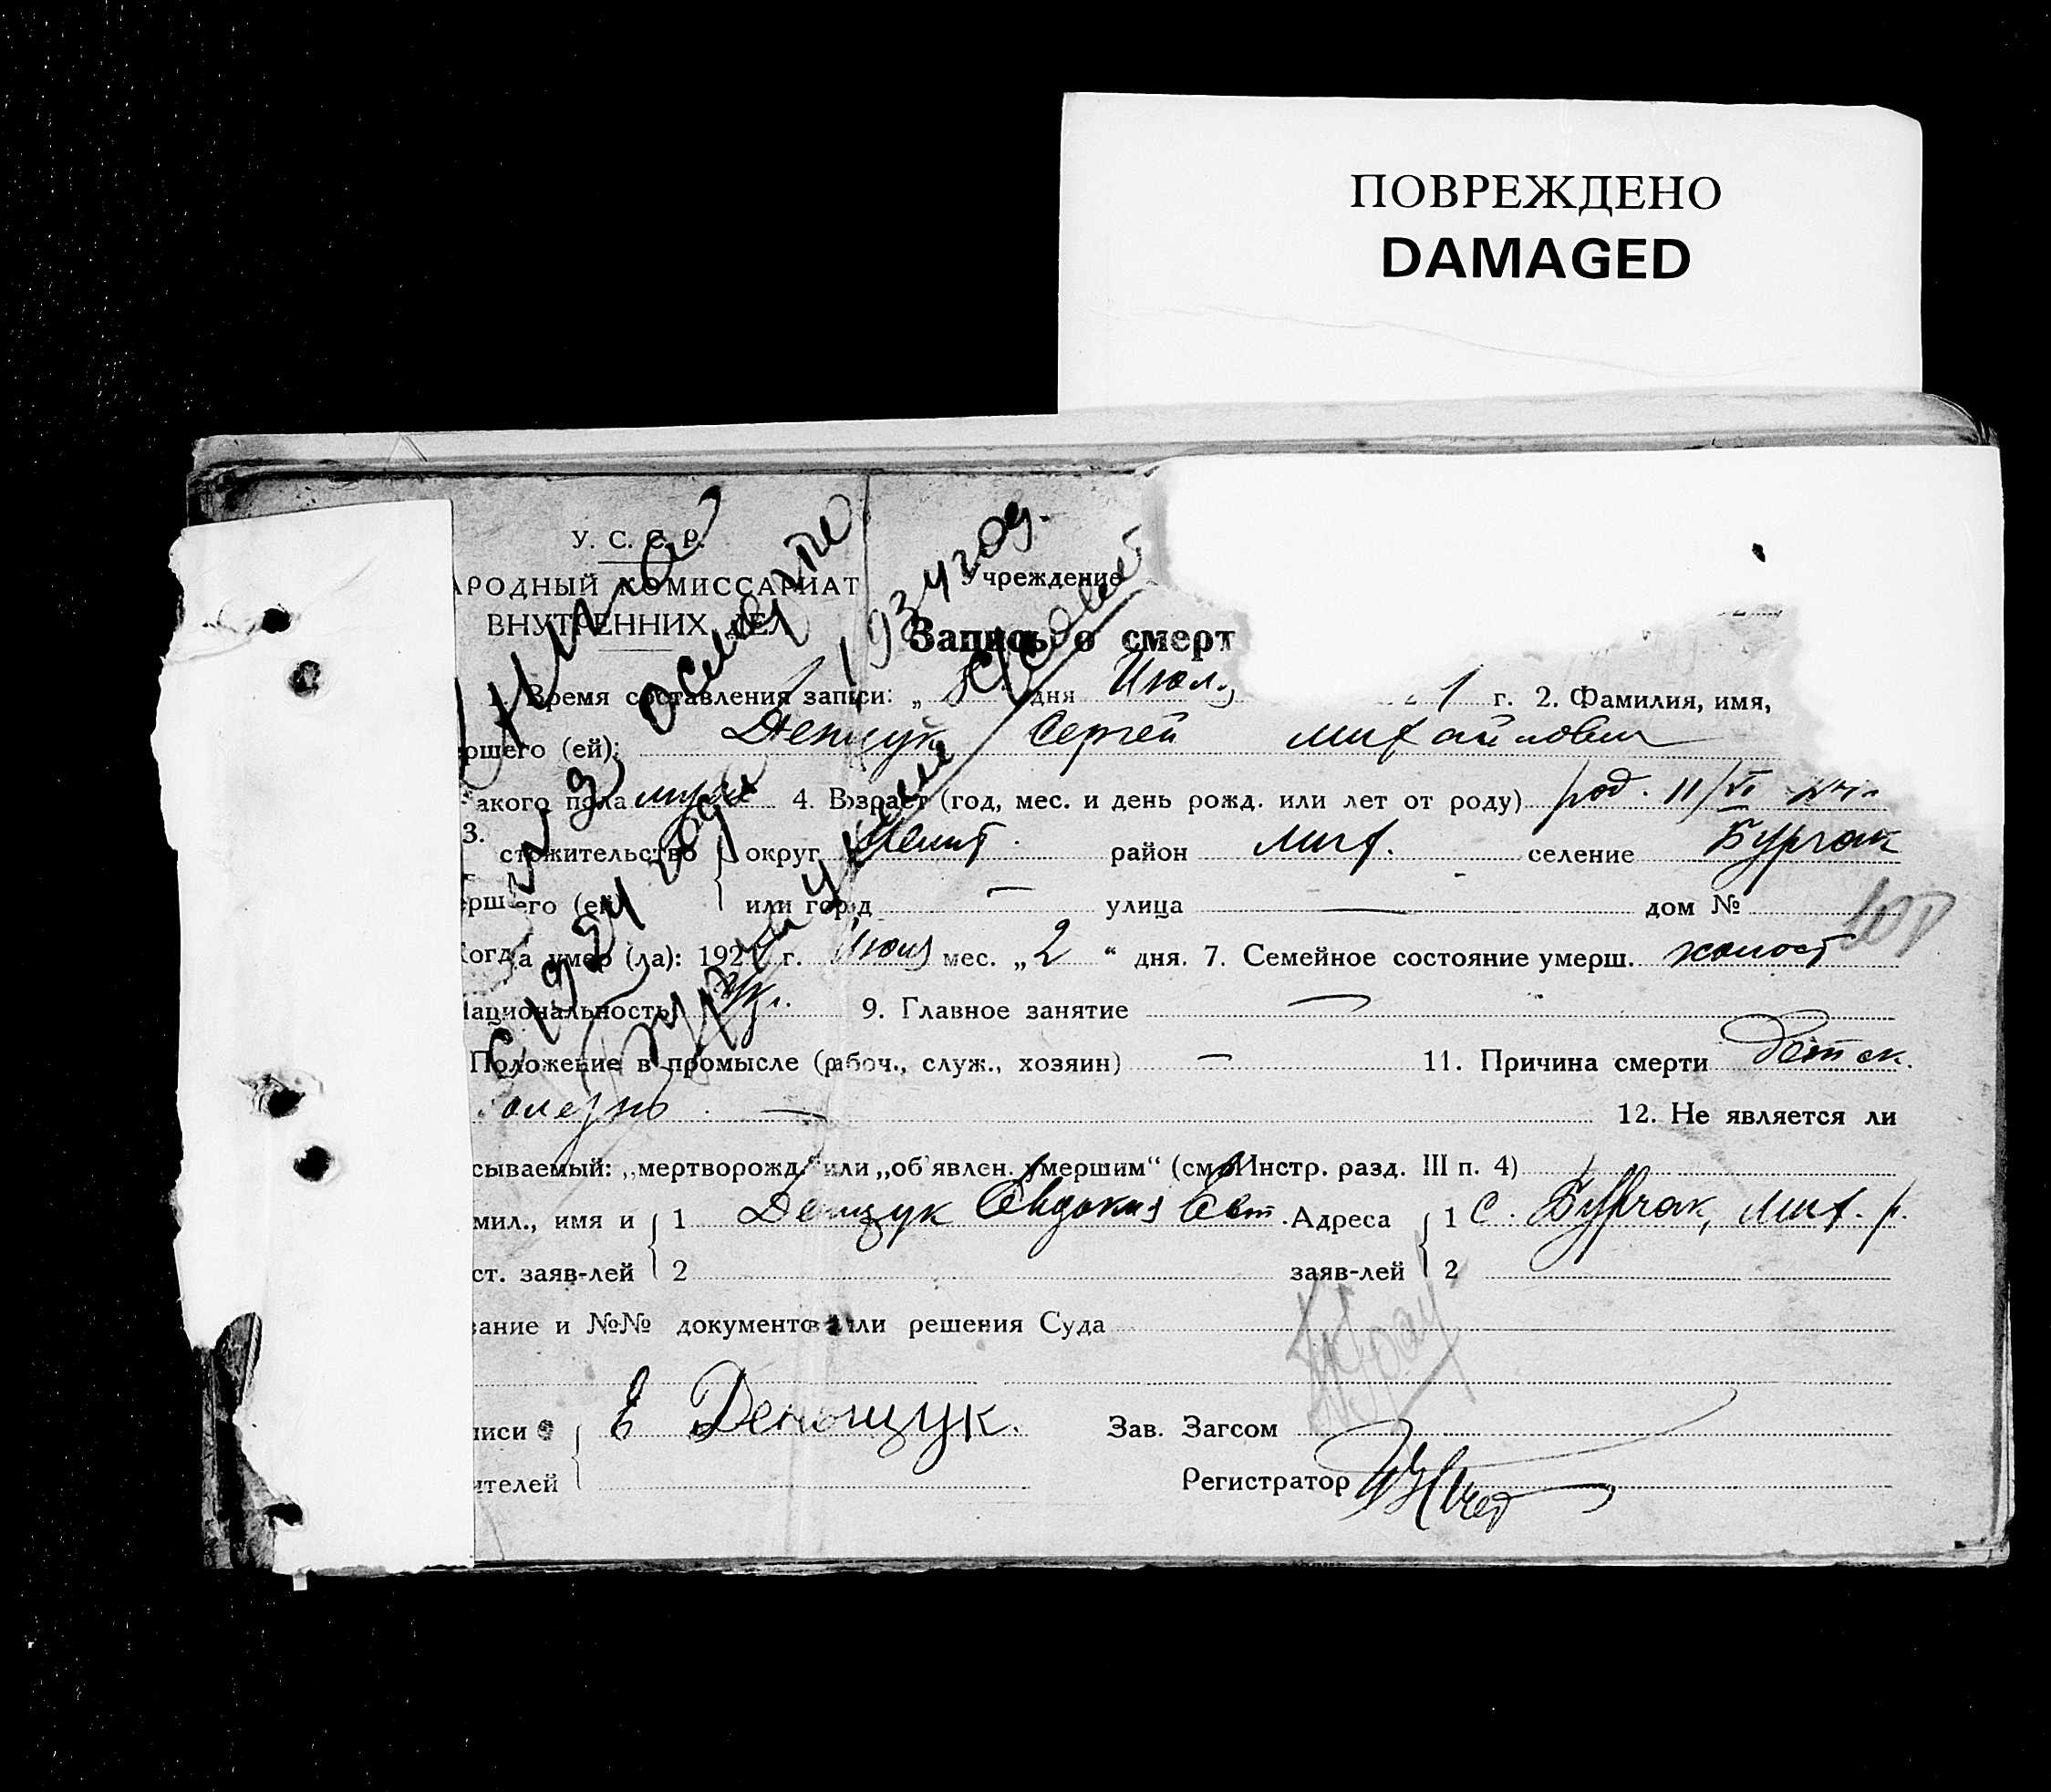 ПОВРЕЖДЕНО
DAMAGED
У. С. С. Р.
АРОДНЫЙ КОМИССАРИАТ
ВНУТРЕННИХ ДЕЛ
Учреждение
Запись о смерт
Книга
о смерти
1934 год.
Время составления записи: „ дня Июля г. 2. Фамилия, имя,
ршего (ей): Денщук Сергей Михайлович
3. акого пола муж. 4. Возраст (год, мес. и день рожд. или лет от роду) род. 11/VI
стожительство округ Мелит. район Мих. селение Бурчак
ершего (ей) или город — улица — дом №
Когда умер (ла): 192 г. Июля мес. „2“ дня. 7. Семейное состояние умерш. холост
Национальность Укр. 9. Главное занятие —
Положение в промысле (рабоч., служ., хозяин) — 11. Причина смерти детск.
олезнь. — 12. Не является ли
сываемый: „мертворожд.“ или „об'явлен. умершим“ (см. Инстр. разд. III п. 4)
мил., имя и 1 Денщук Евдокия Адреса 1 с. Бурчак, Мих. р.
ст. заяв-лей 2 заяв-лей 2
вание и №№ документов или решения Суда
писи Е Денощук. Зав. Загсом
ителей Регистратор